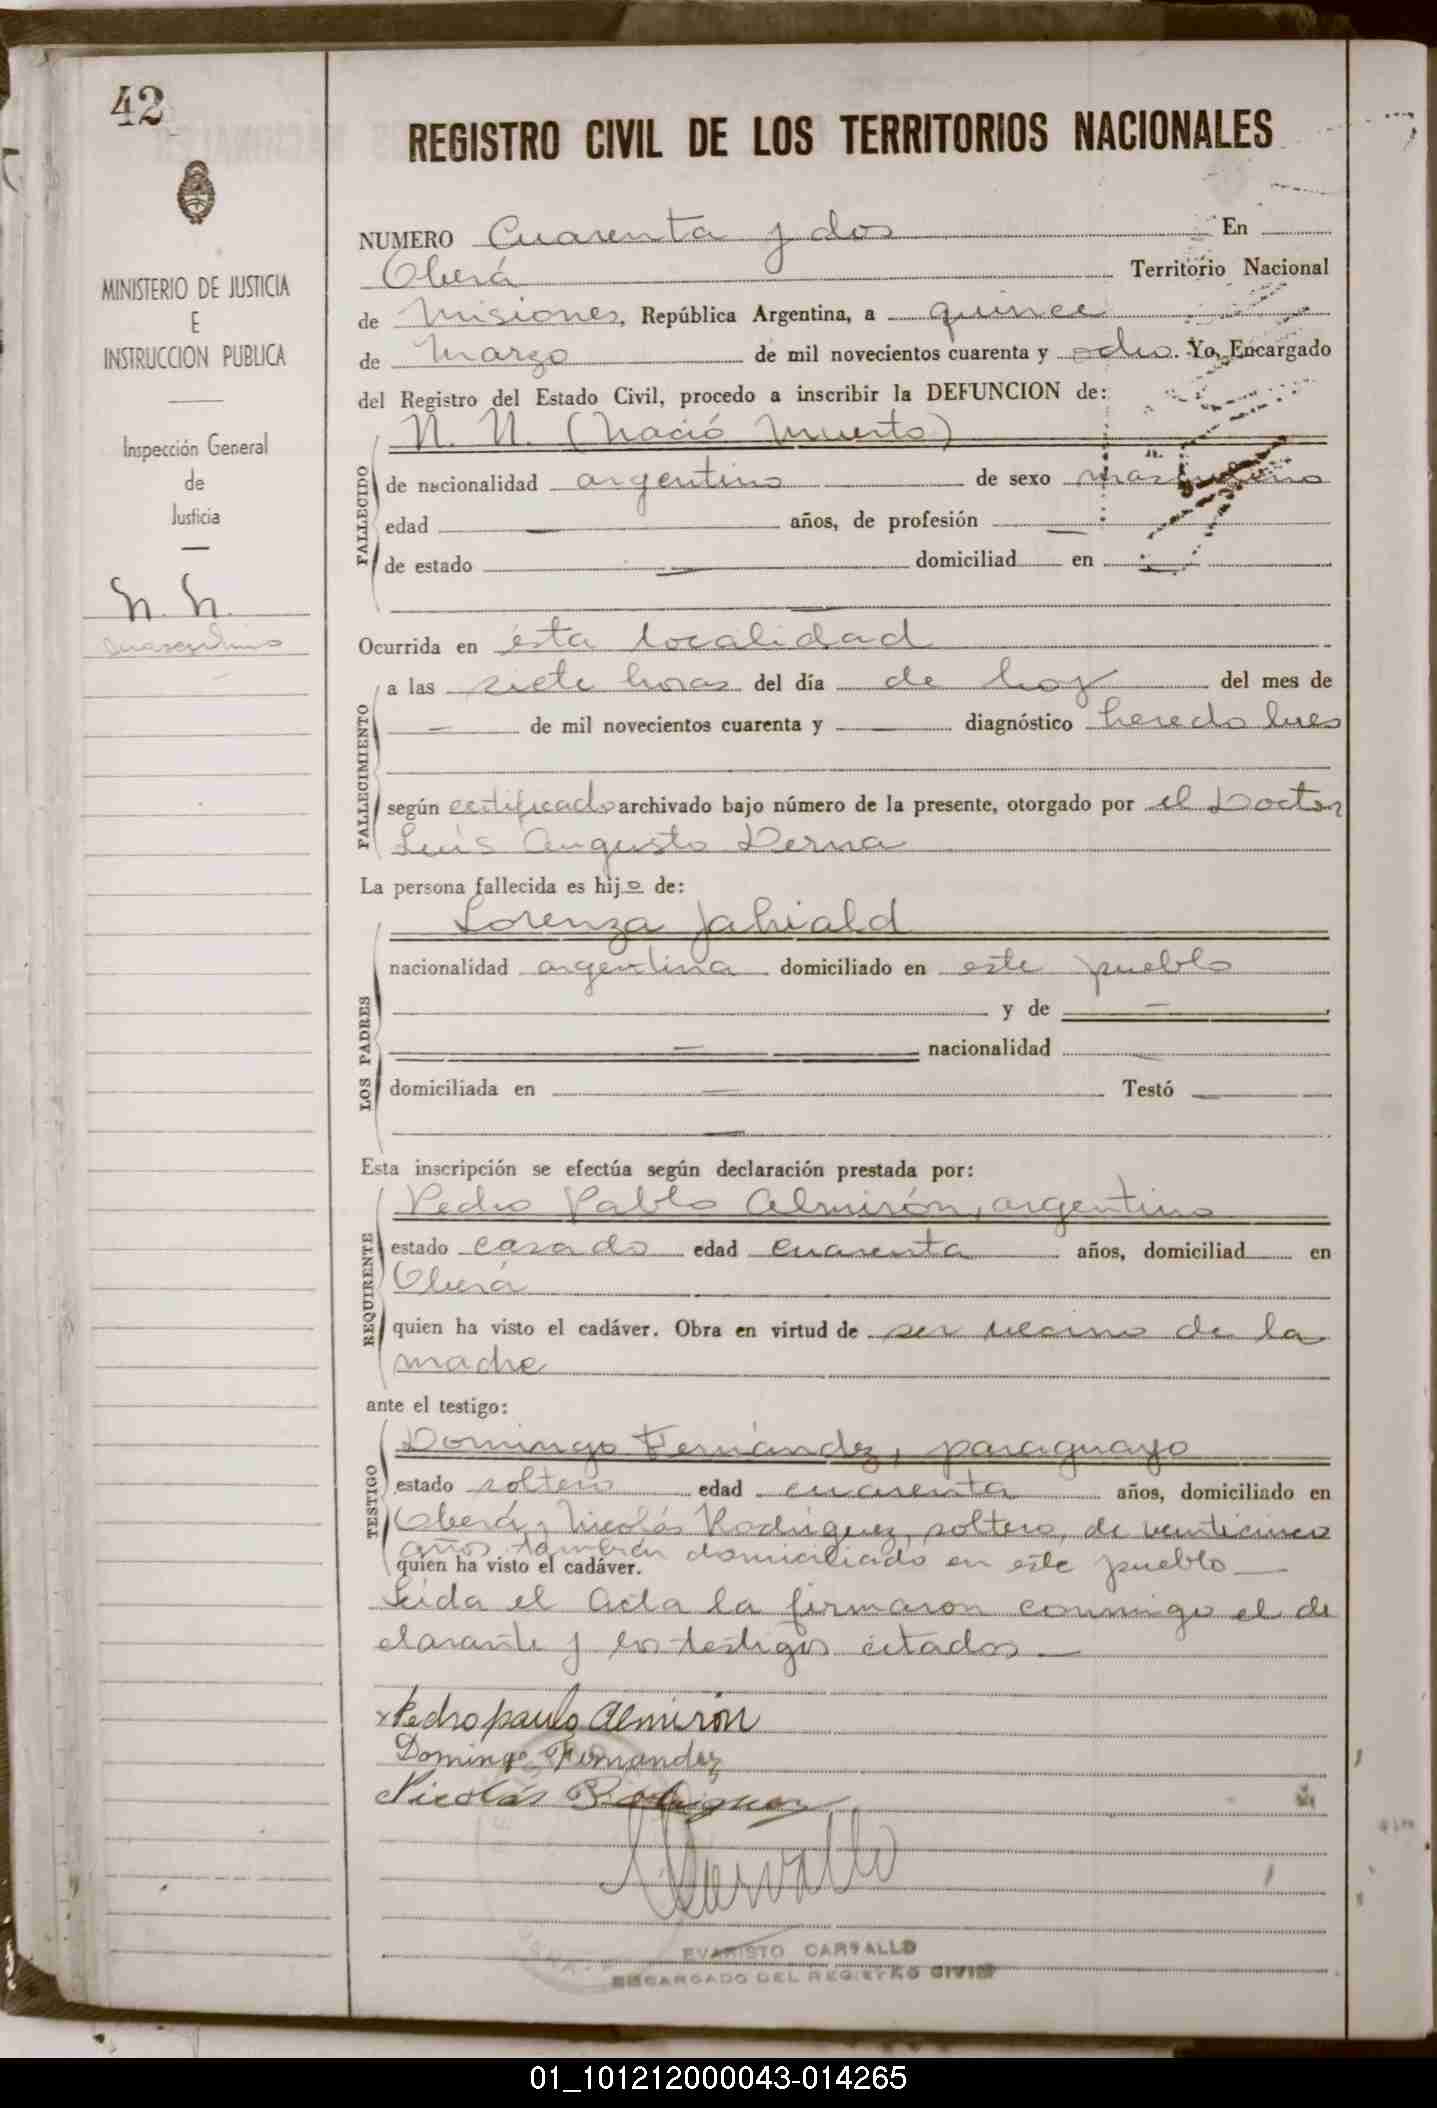 42
REGISTRO CIVIL DE LOS TERRITORIOS NACIONALES
MINISTERIO DE JUSTICIA
E
INSTRUCCION PUBLICA
Inspección General
de
Justicia
N. N.
masculino
NUMERO Cuarenta y dos En
Oberá Territorio Nacional
de Misiones, República Argentina, a quince
de Marzo de mil novecientos cuarenta y ocho. Yo, Encargado
del Registro del Estado Civil, procedo a inscribir la DEFUNCION de:
N. N. (Nació Muerto)
FALLECIDO
de nacionalidad argentino de sexo masculino
edad — años, de profesión —
de estado — domiciliad en —
—
Ocurrida en ésta localidad
FALLECIMIENTO
a las siete horas del día de hoy del mes de
— de mil novecientos cuarenta y — diagnóstico heredo lues
según certificado archivado bajo número de la presente, otorgado por el Doctor
Luis Augusto Derna
La persona fallecida es hijo de:
LOS PADRES
Lorenza Jahiald
nacionalidad argentina domiciliado en este pueblo
y de —
— nacionalidad —
domiciliada en — Testó —
—
Esta inscripción se efectúa según declaración prestada por:
REQUIRENTE
Pedro Pablo Almirón, argentino
estado casado edad cuarenta años, domiciliad en
Oberá
quien ha visto el cadáver. Obra en virtud de ser vecino de la
madre
ante el testigo:
TESTIGO
Domingo Fernández, paraguayo
estado soltero edad cuarenta años, domiciliado en
Oberá, y Nicolás Rodríguez, soltero, de veinticinco
años, también domiciliado en este pueblo —
quien ha visto el cadáver.
Leida el Acta la firmaron conmigo el de
clarante y los testigos citados —
x Pedro paulo Almirón
Domingo Fernandez
Nicolás Rodriguez
Carvallo
EVARISTO CARVALLO
ENCARGADO DEL REGISTRO CIVIL
01_101212000043-014265